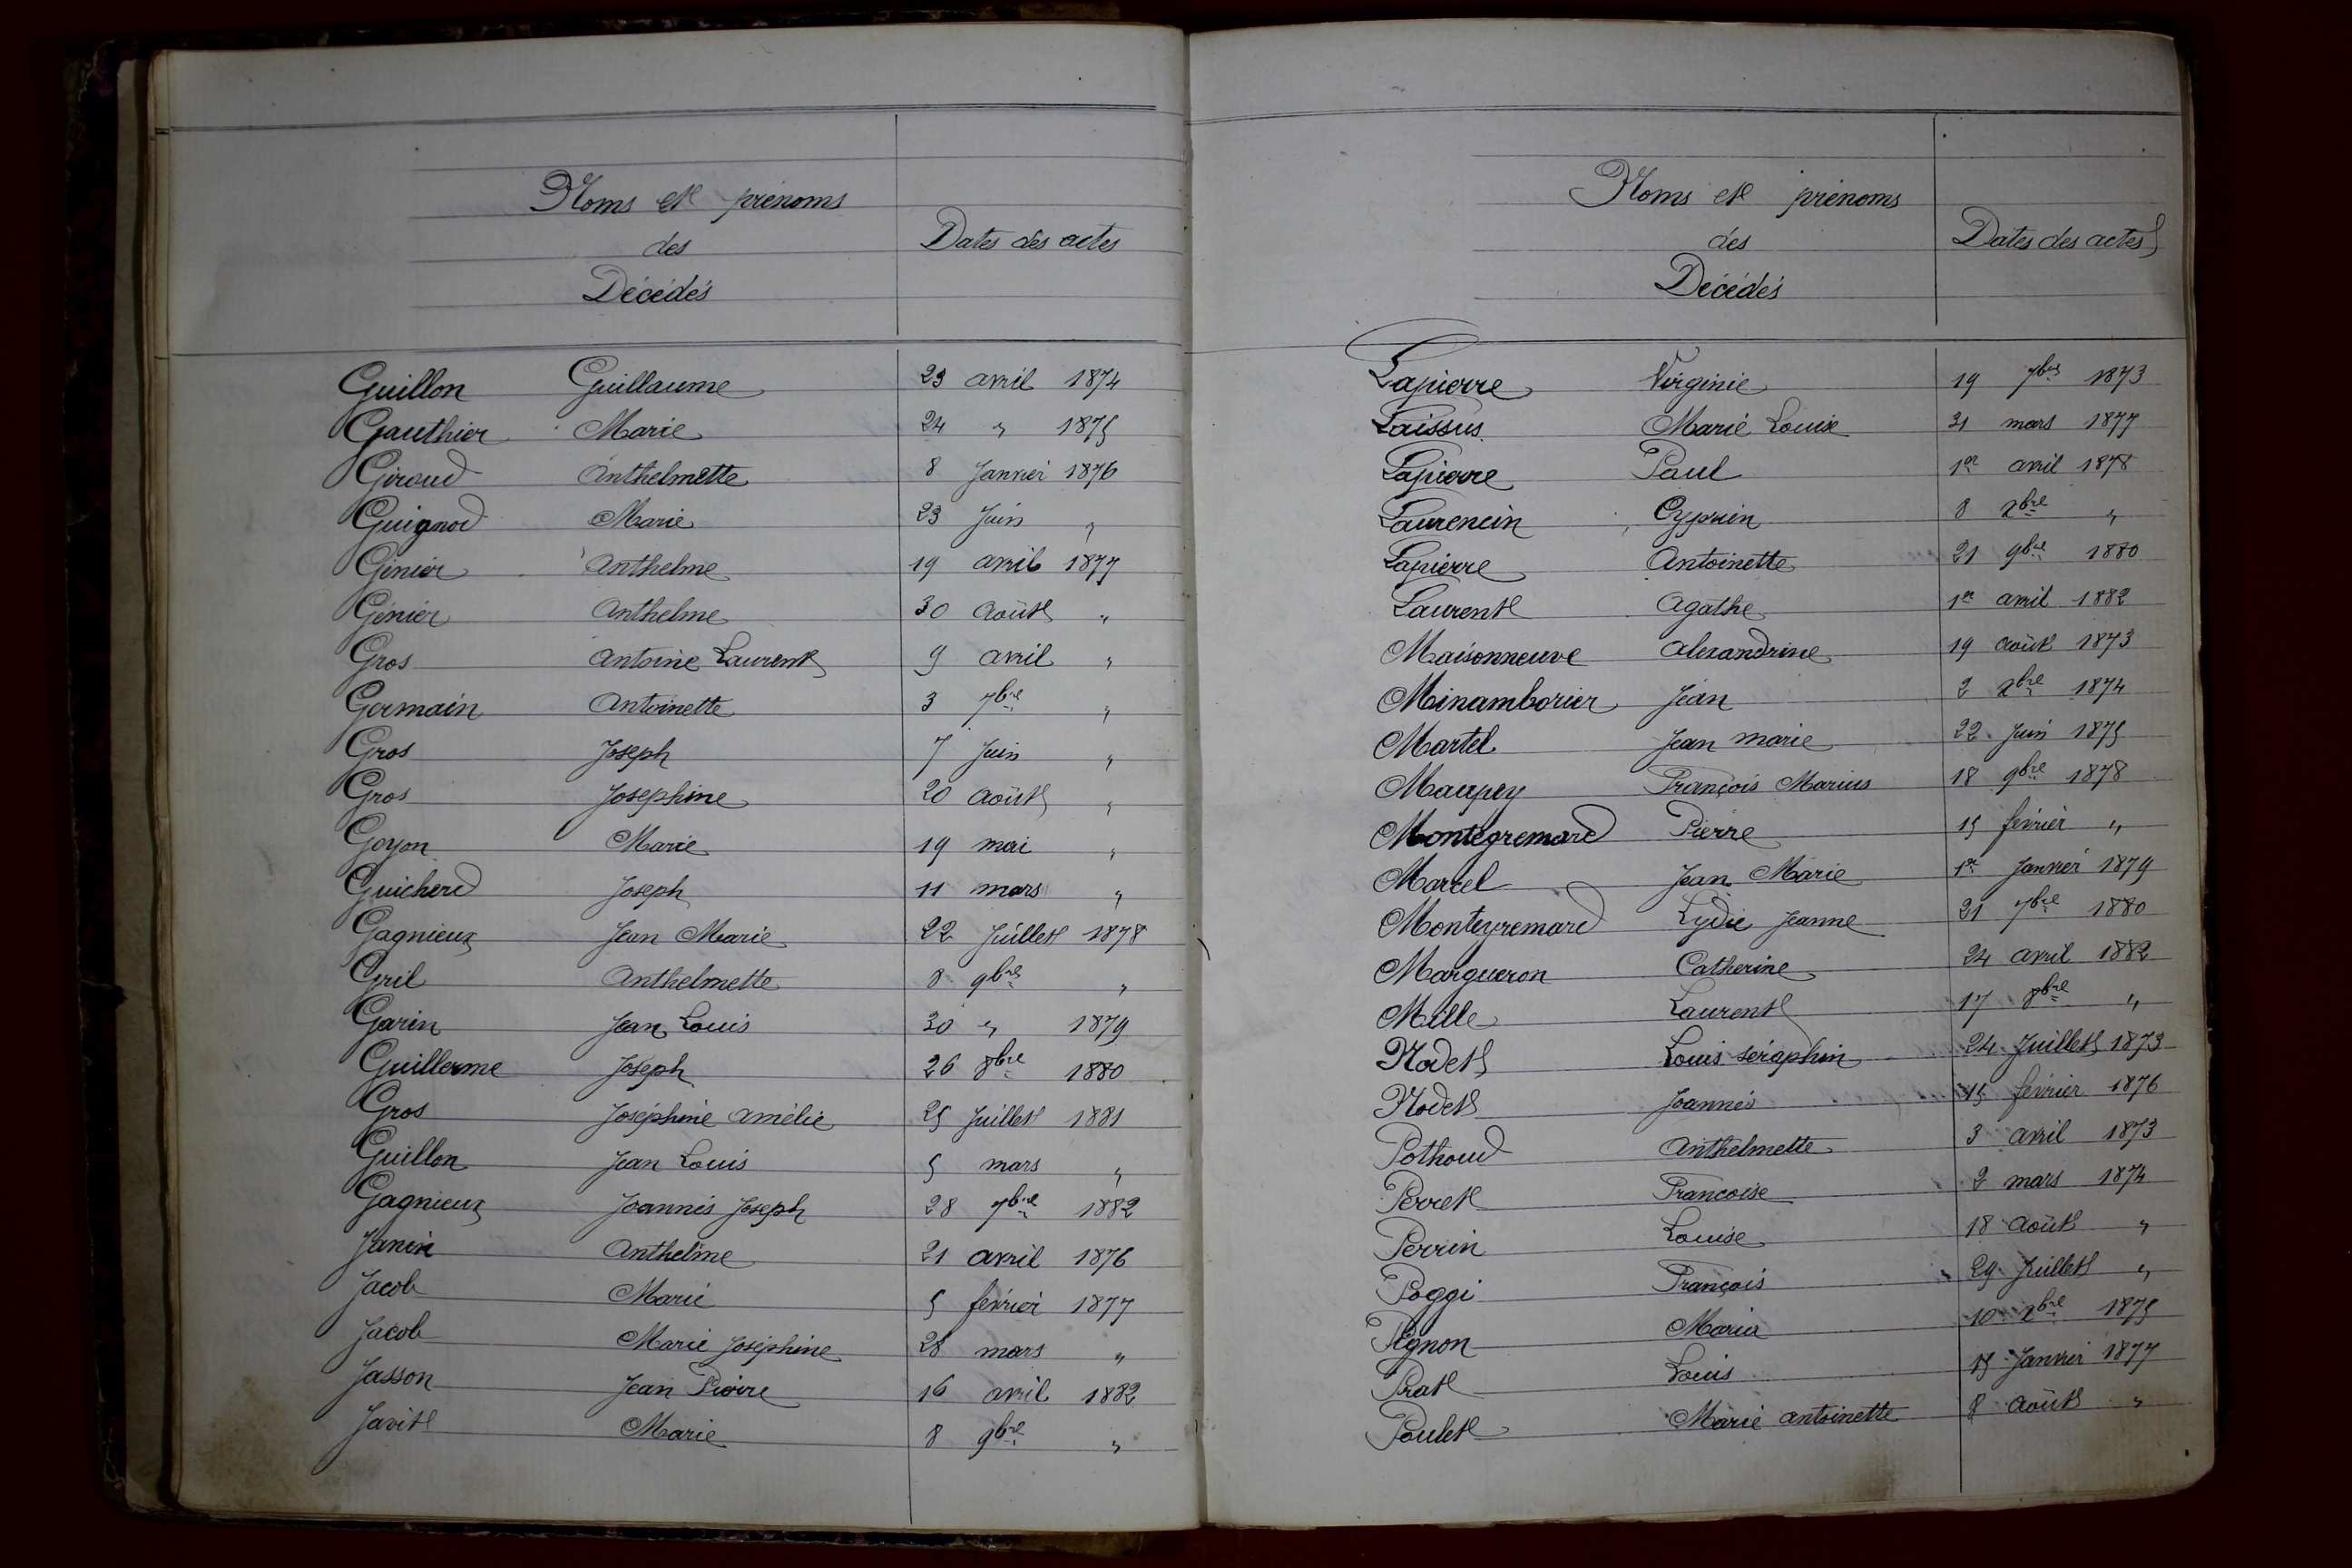 Noms et prénoms
des
Décédés
Dates des actes
Guillon Guillaume 23 avril 1874
Gauthier Marie 24 " 1875
Giroud Anthelmette 8 Janvier 1876
Guignod Marie 23 Juin "
Génier Anthelme 19 avril 1877
Génier Anthelme 30 Août "
Gros Antoine Laurent 9 avril "
Germain Antoinette 3 7bre "
Gros Joseph 7 Juin "
Gros Joséphine 20 Août "
Goyon Marie 19 mai "
Guicherd Joseph 11 mars "
Gagnieux Jean Marie 22 Juillet 1878
Gril Anthelmette 8 9bre "
Garin Jean Louis 30 " 1879
Guillerme Joseph 26 8bre 1880
Gros Joséphine Amélie 25 Juillet 1881
Guillon Jean Louis 5 mars "
Gagnieux Joannès Joseph 28 7bre 1882
Janin Anthelme 21 avril 1876
Jacob Marie 5 février 1877
Jacob Marie Joséphine 28 mars "
Jasson Jean Pierre 16 avril 1882
Javit Marie 8 9bre "
Noms et prénoms
des
Décédés
Dates des actes
Lapierre Virginie 19 7bre 1873
Laissus Marie Louise 31 mars 1877
Lapierre Paul 1er avril 1878
Laurencin Cyprien 8 xbre "
Lapierre Antoinette 21 9bre 1880
Laurent Agathe 1er avril 1882
Maisonneuve Alexandrine 19 août 1873
Minamborier Jean 2 xbre 1874
Martel Jean marie 22 Juin 1875
Maupey François Marius 18 9bre 1878
Montegremard Pierre 15 février "
Martel Jean Marie 1er Janvier 1879
Monteyremard Lydie Jeanne 21 7bre 1880
Margueron Catherine 24 avril 1882
Mille Laurent 17 8bre "
Nodet Louis séraphin 24 Juillet 1873
Nodet Joannès 15 février 1876
Pothoud Anthelmette 3 avril 1873
Perret Francoise 2 mars 1874
Perrin Louise 18 Août "
Poggi François 29 Juillet "
Pignon Maria 10 xbre 1875
Prat Louis 15 Janvier 1877
Poulet Marie antoinette 8 Août "